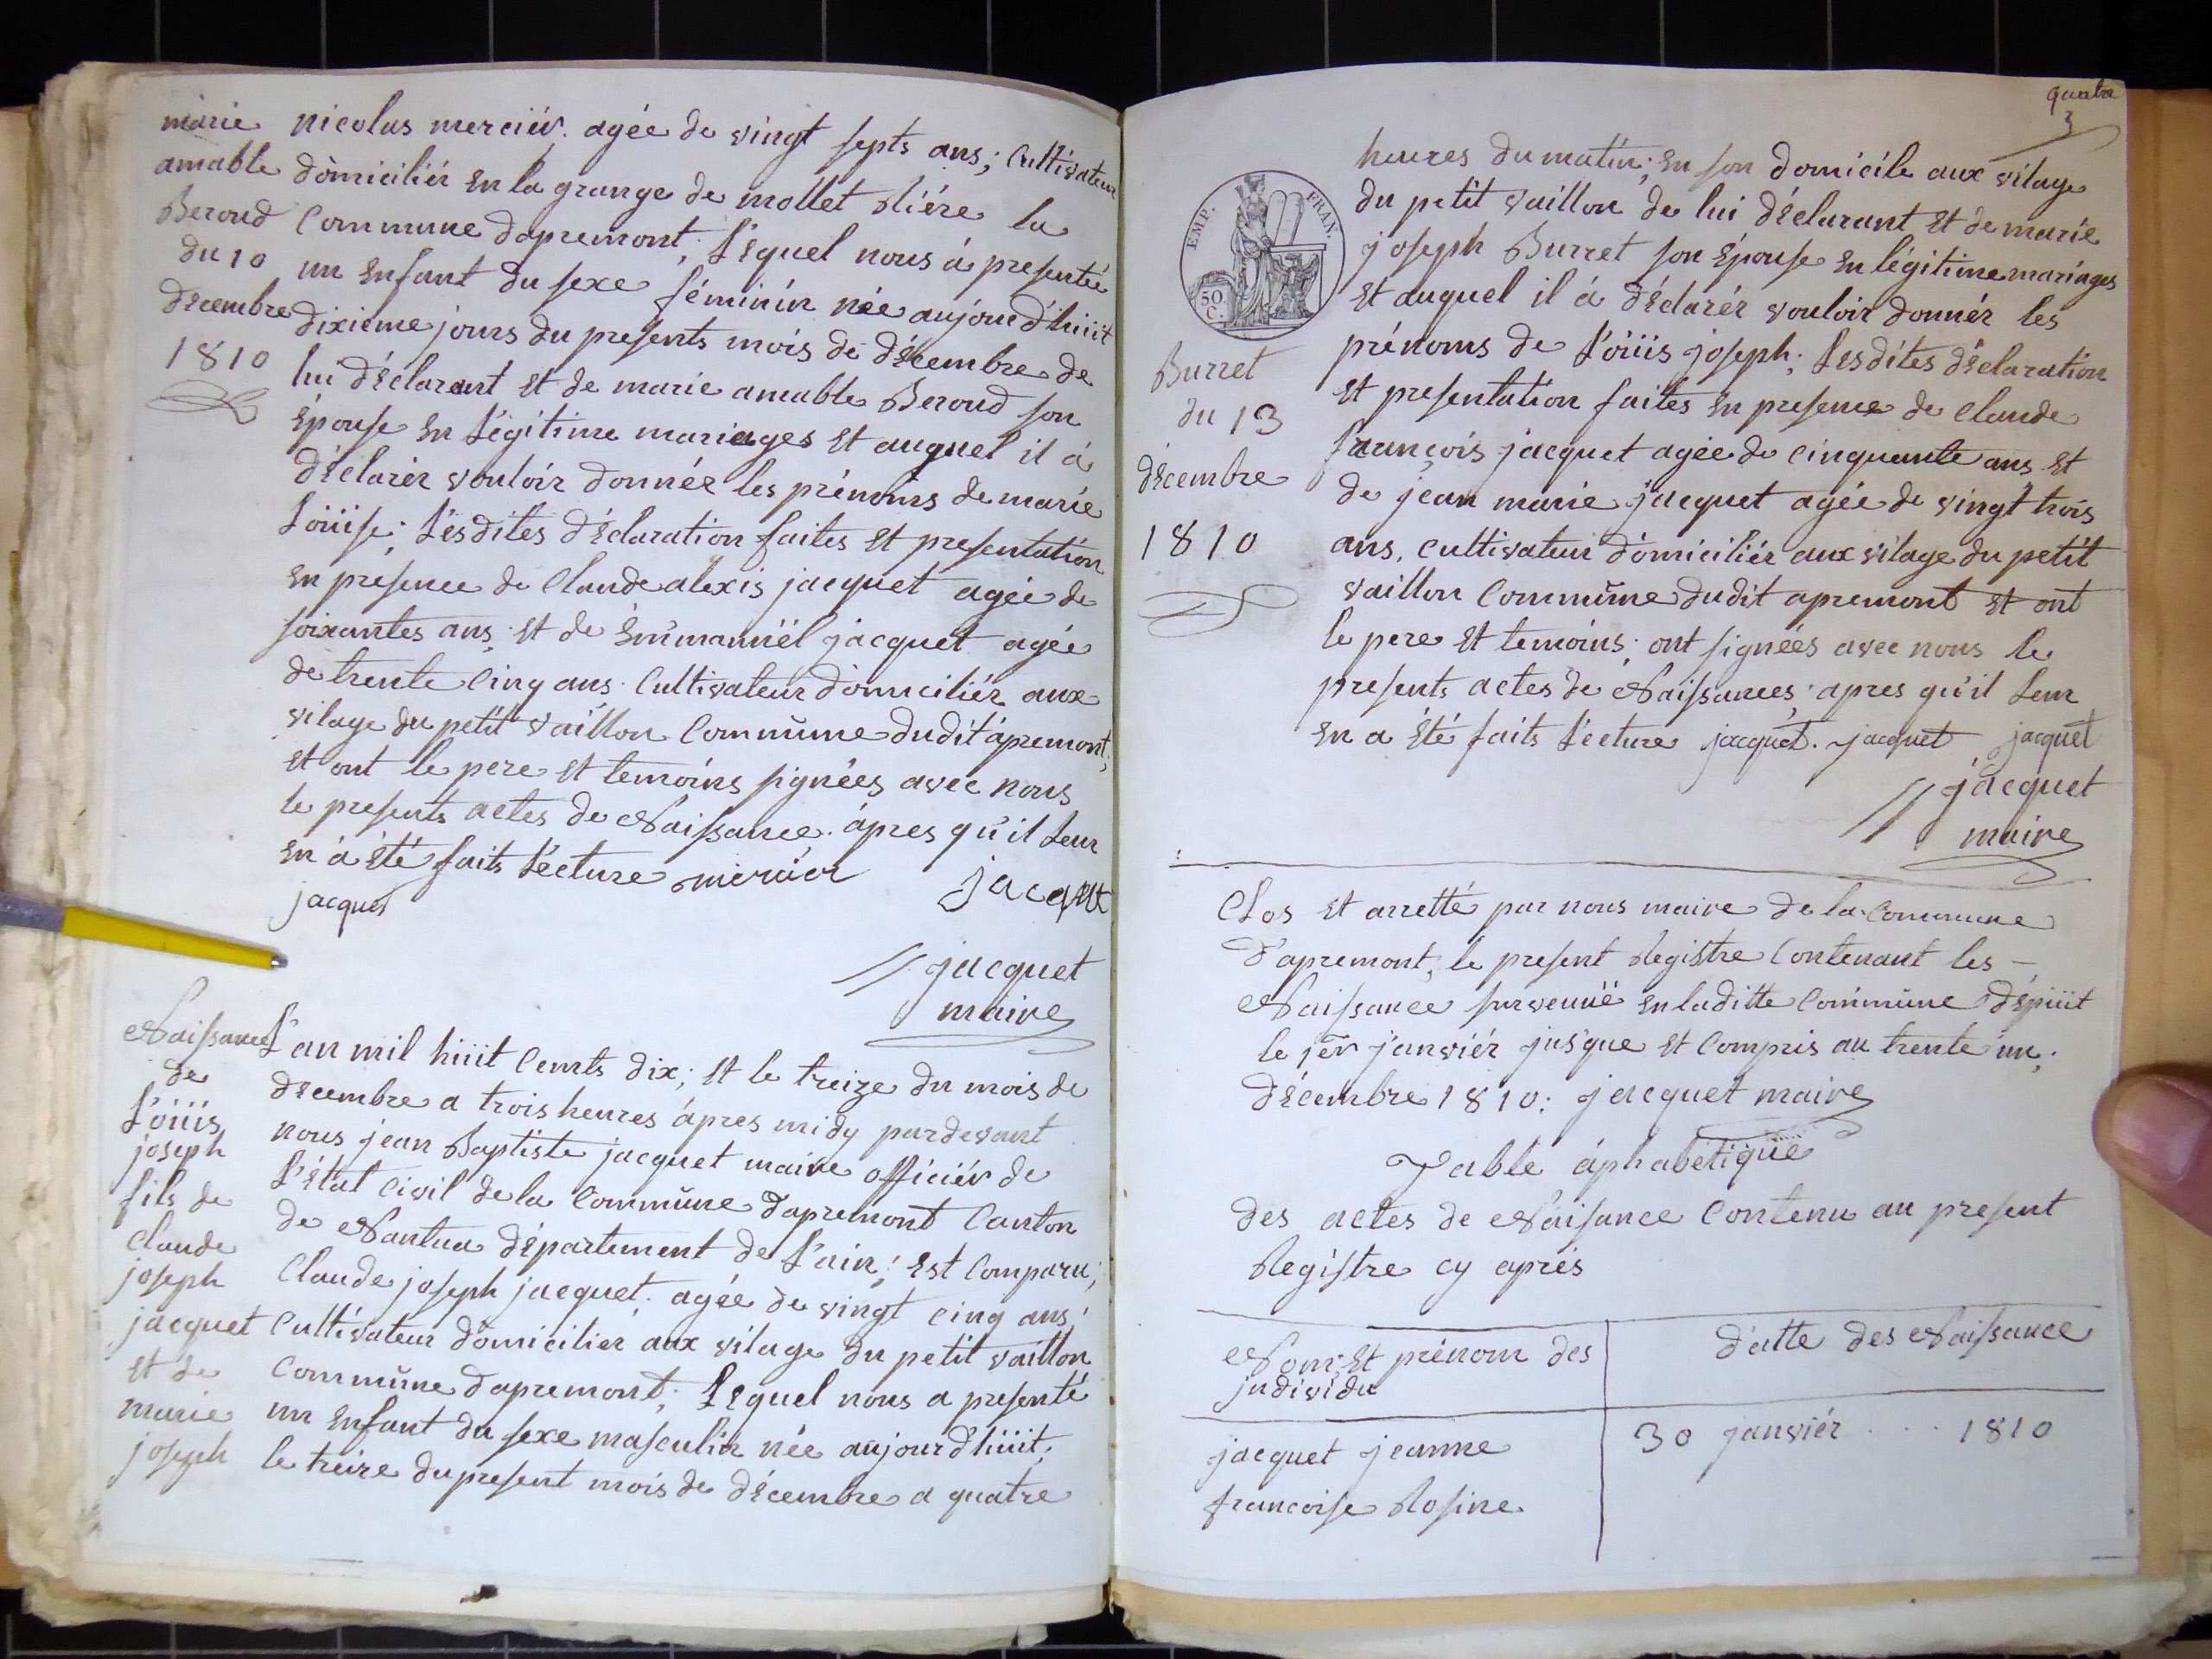 marie
amable
Beroud
du 10
décembre
1810
nicolas merciér. agée de vingt septs ans; Cultivateur
dòmiciliér en la grange de mollet diére la
Commune dapremont; Léquel nous á presentée
un enfant du sexe féminin née aujourd'hiiit
dixieme jours du presents mois de décembre de
lui déclarant et de marie amable Beroud son
épouse en Légitime mariages et auquel il á
déclarér vouloir donnér les prénoms de marie
Loüise; Lésdites déclaration faites et presentation
en presence de Claude alexis jacquet agée de
soixantes ans, et de émmanuël jacquet agée
de trente cinq ans. Cultivateur dòmiciliér aux
vilage du petit vaillon Commune dudit ápremont;
et ont le pere et temoins signées avec nous
le presents actes de Naissance. ápres qu'il Leur
en á été faits Lécture merciér
jacquet
jacquet
jacquet
maire
Naissance
de
Loüis
joseph
fils de
Claude
joseph
jacquet
et de
marie
joseph
L'an mil hiiit Cents dix; et le treize du mois de
décembre a trois heures ápres midy pardevant
nous jean Baptiste jacquet maire officiér de
L'état Civil de la Commune dapremont Canton
de Nantua département de L'ain; est Comparu;
Claude joseph jacquet. agée de vingt cinq ans;
Cultivateur dòmicilier aux vilage du petit vaillon
Commune dapremont; Léquel nous a presenté
un enfant du sexe masculin née aujourd'hiiit,
le treize du present mois de décembre a quatre
quatre
3
EMP. FRAN.
50 C.
Burret
du 13
décembre
1810
heures du matin; en son domicile aux vilage
du petit vaillon de lui déclarant et de marie
joseph Burret son épouse en légitime mariages
et auquel il á déclarér vouloir donnér les
prénoms de Loüis joseph; Lesdites déclaration
et presentation faites en presence de Claude
françois jacquet agée de cinquante ans et
de jean marie jacquet agée de vingt trois
ans. Cultivateur dòmiciliér aux vilage du petit
vaillon Commune dudit apremont et ont
le pere et temoins; ont signées avec nous le
presents actes de Naissances; apres qu'il Leur
en a été faits Lécture jacquet. jacquet jacquet
jacquet
maire
Clos et arretté par nous maire de la Commune
d'apremont, le present Registre Contenant les -
Naissance survenuë en laditte Commune dépuit
le 1er janviér jusque et Compris au trente un;
décembre 1810: jacquet maire
Table áphabetique
des actes de Naisance Contenu au present
Registre cy aprés
Nom; et prénom des
individu
datte des Naissance
jacquet jeanne
francoise Rosine
30 janviér . . . 1810